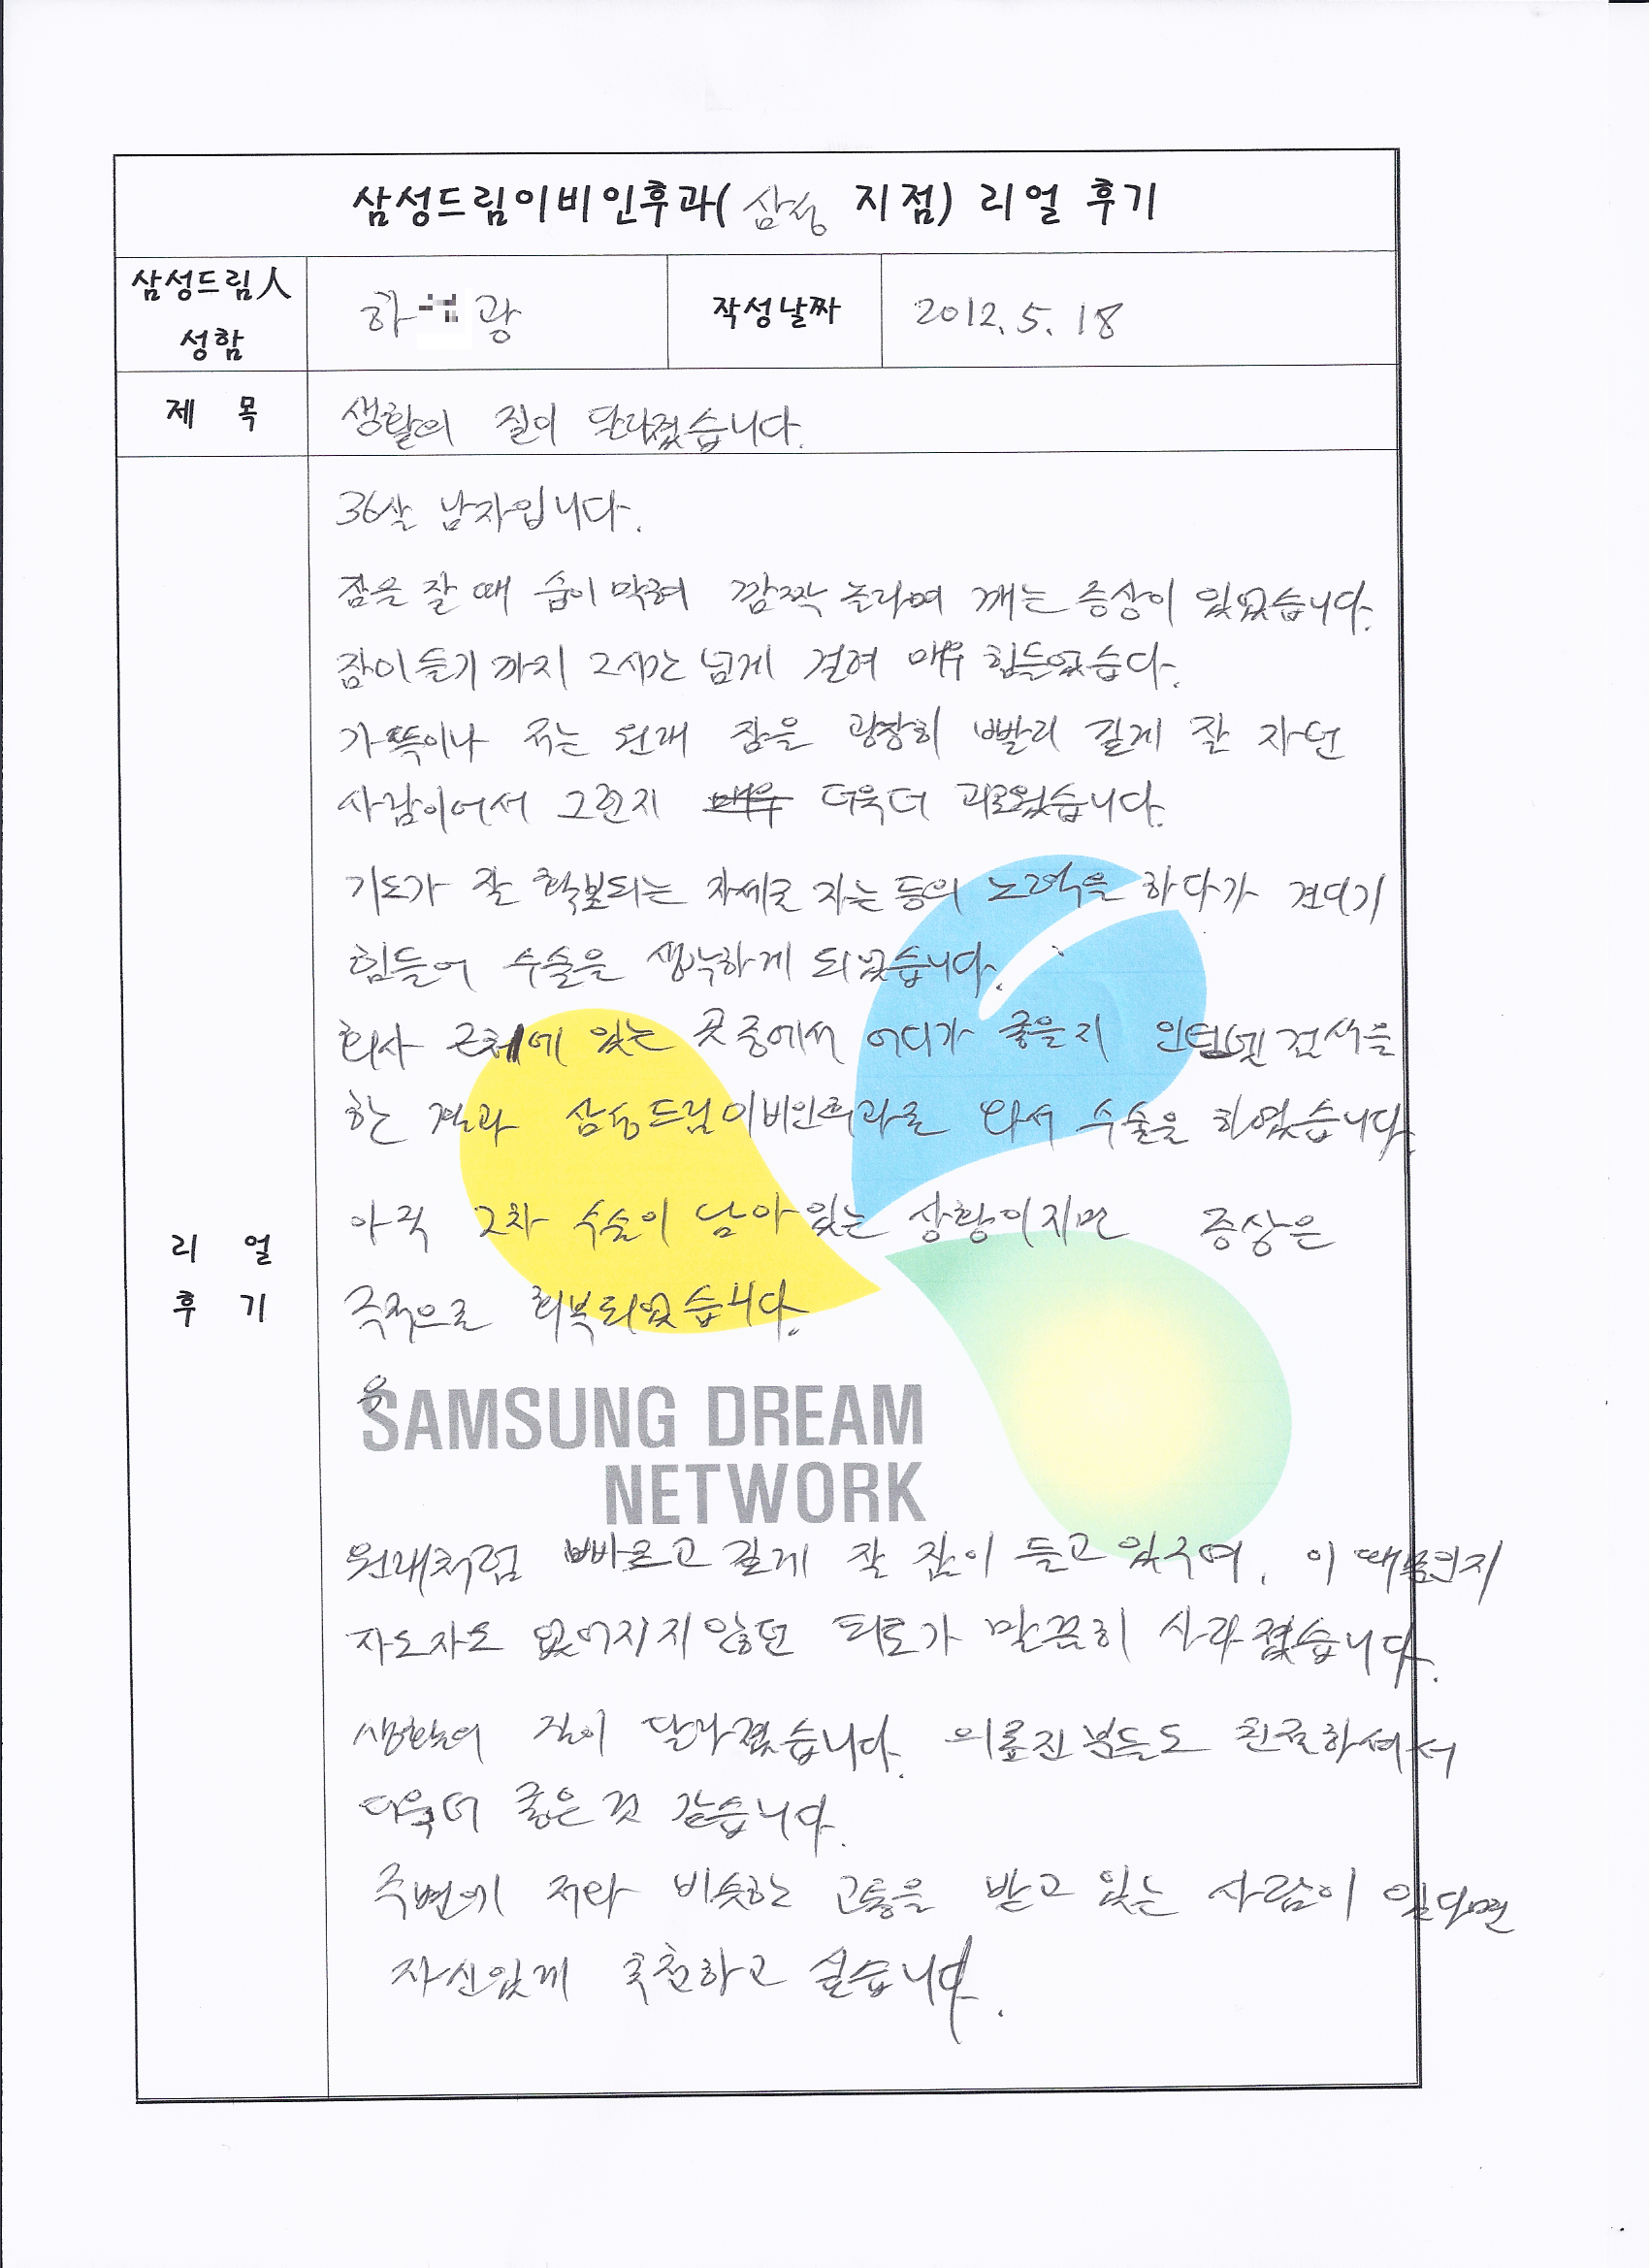 삼성드림이비인후과( 삼성 지점) 리얼 후기
삼성드림人 성함
하 광
작성날짜
2012. 5. 18
제 목
생활의 질이 달라졌습니다.
리 얼
후 기
36살 남자입니다.
잠을 잘 때 숨이 막혀 깜짝 놀라며 깨는 증상이 있었습니다.
잠이 들기 까지 2시간 넘게 걸려 매우 힘들었습다.
가뜩이나 저는 원래 잠을 굉장히 빨리 깊게 잘 자던
사람이어서 그런지 더욱더 괴로웠습니다.
기도가 잘 확보되는 자세로 자는 등의 노력을 하다가 견디기
힘들어 수술을 생각하게 되었습니다.
회사 근처에 있는 곳 중에서 어디가 좋을지 인터넷 검색을
한 결과 삼성드림이비인후과로 와서 수술을 하였습니다.
아직 2차 수술이 남아 있는 상황이지만 증상은
극적으로 회복되었습니다.
SAMSUNG DREAM
NETWORK
원래처럼 빠르고 깊게 잘 잠이 들고 있으며, 이 때문인지
자도자도 없어지지않던 피로가 말끔히 사라졌습니다.
생활의 질이 달라졌습니다. 의료진분들도 친절하셔서
더욱더 좋은것 같습니다.
주변에 저와 비슷한 고통을 받고 있는 사람이 있다면
자신있게 추천하고 싶습니다.